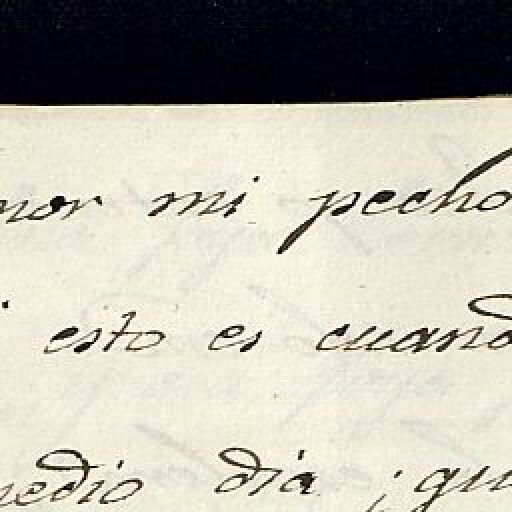 mor mi pecho
esto es cuand
medio dia ¡qu